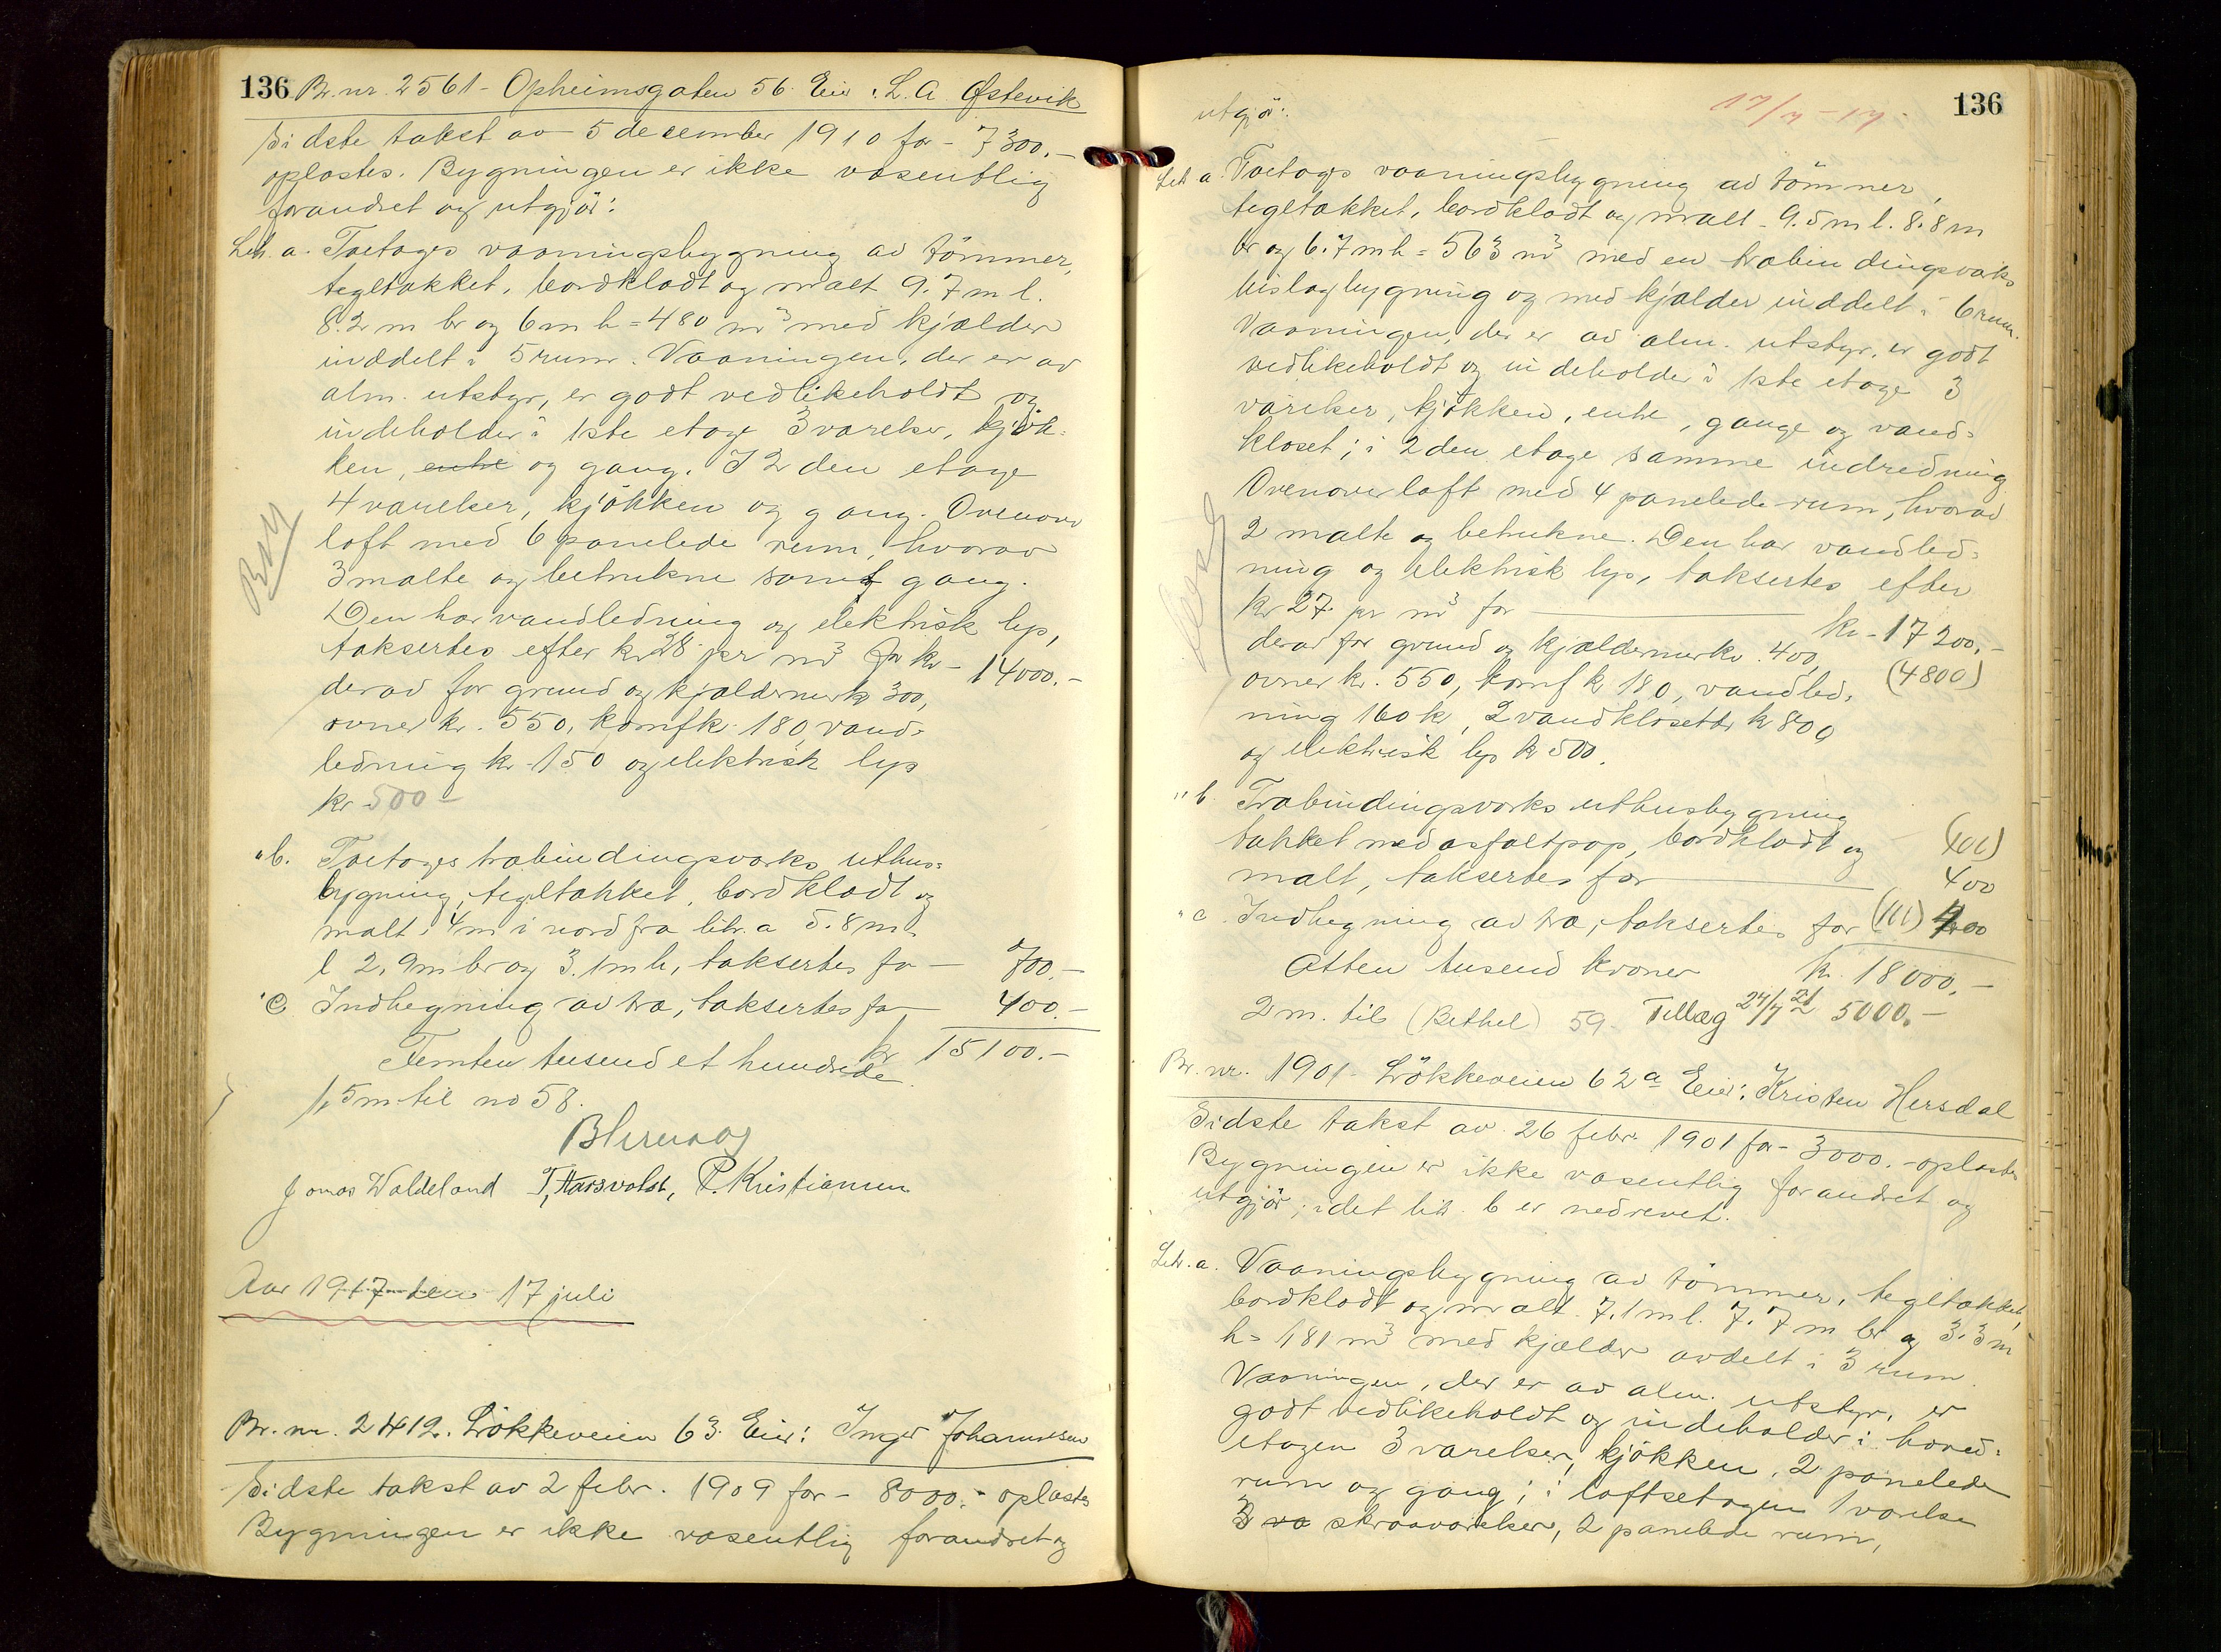 136 Br. nr. 2561 - Opheimsgaten 56. Eier: L. A. Østevik
Sidste takst av 5 december 1910 for - 7300.-
oplæstes. Bygningen er ikke væsentlig
forandret og utgjör:
Litr. a. Toetages vaaningsbygning av tömmer,
tegltækket, bordklædt og malt 9.7 m l.
8.2 m br og 6 m h = 480 m³ med kjælder
inddelt i 5 rum. Vaaningen, der er av
alm. utstyr, er godt vedlikeholdt og
indeholder i 1ste etage 3 værelser, kjök-
ken, entre og gang. I 2den etage
4 værelser, kjökken og gang. Ovenover
loft med 6 panelede rum, hvorav
3 malte og betrukne samt gang.
Den har vandledning og elektrisk lys,
taksertes efter kr 28 pr m³ for kr - 14000.-
derav for grund og kjældermurk 300,
ovner kr. 550, komf kr. 180, vand-
ledning kr. 150 og elektrisk lys
kr 500-
" b. Toetages træbindingsværks uthus-
bygning, tegltækket, bordklædt og
malt, 4 m i nord fra litr. a 5.8 m.
l 2.9 m br og 3.1 m h, taksertes for - 700.-
" c Indhegning av træ, taksertes for - 400.-
Femten tusend et hundrede kr 15100.-
1,5 m til no 58.
Jonas Waldeland T. Aarsvold, P. Kristiansen
Aar 1917 den 17 juli
Br. nr. 2412. Lökkeveien 63. Eier: Inger Johannesen
Sidste takst av 2 febr. 1909 for - 8000.- oplæstes
Bygningen er ikke væsentlig forandret og
17/7 - 17. 136
utgjör:
Litr a. Toetages vaaningsbygning av tömmer,
tegltækket, bordklædt og malt - 9.5 m l. 8.8 m
br og 6.7 m h = 563 m³ med en træbindingsværks
bislagbygning og med kjælder inddelt i 6 rum.
Vaaningen, der er av alm. utstyr, er godt
vedlikeholdt og indeholder i 1ste etage 3
værelser, kjökken, entre, gange og vand-
kloset; i 2den etage samme indredning
Ovenover loft med 4 panelede rum, hvorav
2 malte og betrukne. Den har vandled-
ning og elektrisk lys, taksertes efter
kr 27. pr m³ for kr - 17200.-
derav for grund og kjældermurk. 400, (4800)
ovner kr. 550, komf kr 180, vandled-
ning 160 kr, 2 vandklosetter kr 800
og elektrisk lys kr 500.
" b. Træbindingsværks uthusbygning
tækket med asfaltpap, bordklædt og
malt, taksertes for 400
" c. Indhegning av træ, taksertes for 400
Atten tusend kroner kr. 18000.-
2 m. til (Bethel) 59. Tillæg 27/7 21 5000.-
Br. nr. 1901 - Lökkeveien 62 a Eier: Kristen Hersdal
Sidste takst av 26 febr. 1901 for - 3000.- oplæstes
Bygningen er ikke væsentlig forandret og
utgjör; idet litr. b er nedrevet.
Litr. a. Vaaningsbygning av tömmer, tegltækket,
bordklædt og malt. 7.1 m l. 7.7 m br og 3.3 m
h = 181 m³ med kjælder avdelt i 3 rum.
Vaaningen, der er av alm. utstyr, er
godt vedlikeholdt og indeholder i hoved-
etagen 3 værelser, kjökken, 2 panelede
rum og gang; i loftsetagen 1 værelse
3 væ skraaværelser, 2 panelede rum,